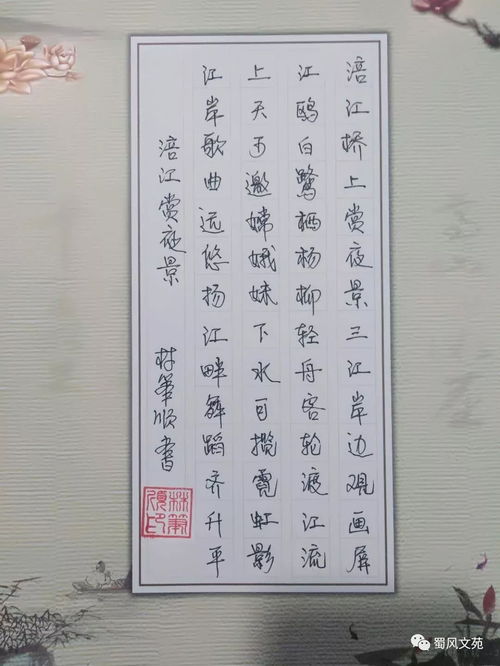 涪江桥上赏夜景三江岸边观画屏
江鸥白鹭栖杨柳轻舟客轮渡江流
上天可邀嫦娥妹下水可揽霓虹影
江岸歌曲远悠扬江畔舞蹈齐升平
涪江赏夜景
林筆顺书
蜀风文苑